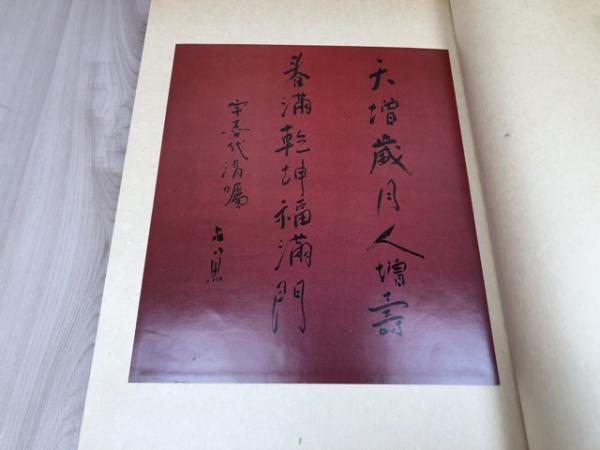 天增歲月人增壽
春滿乾坤福滿門
宇香代清囑